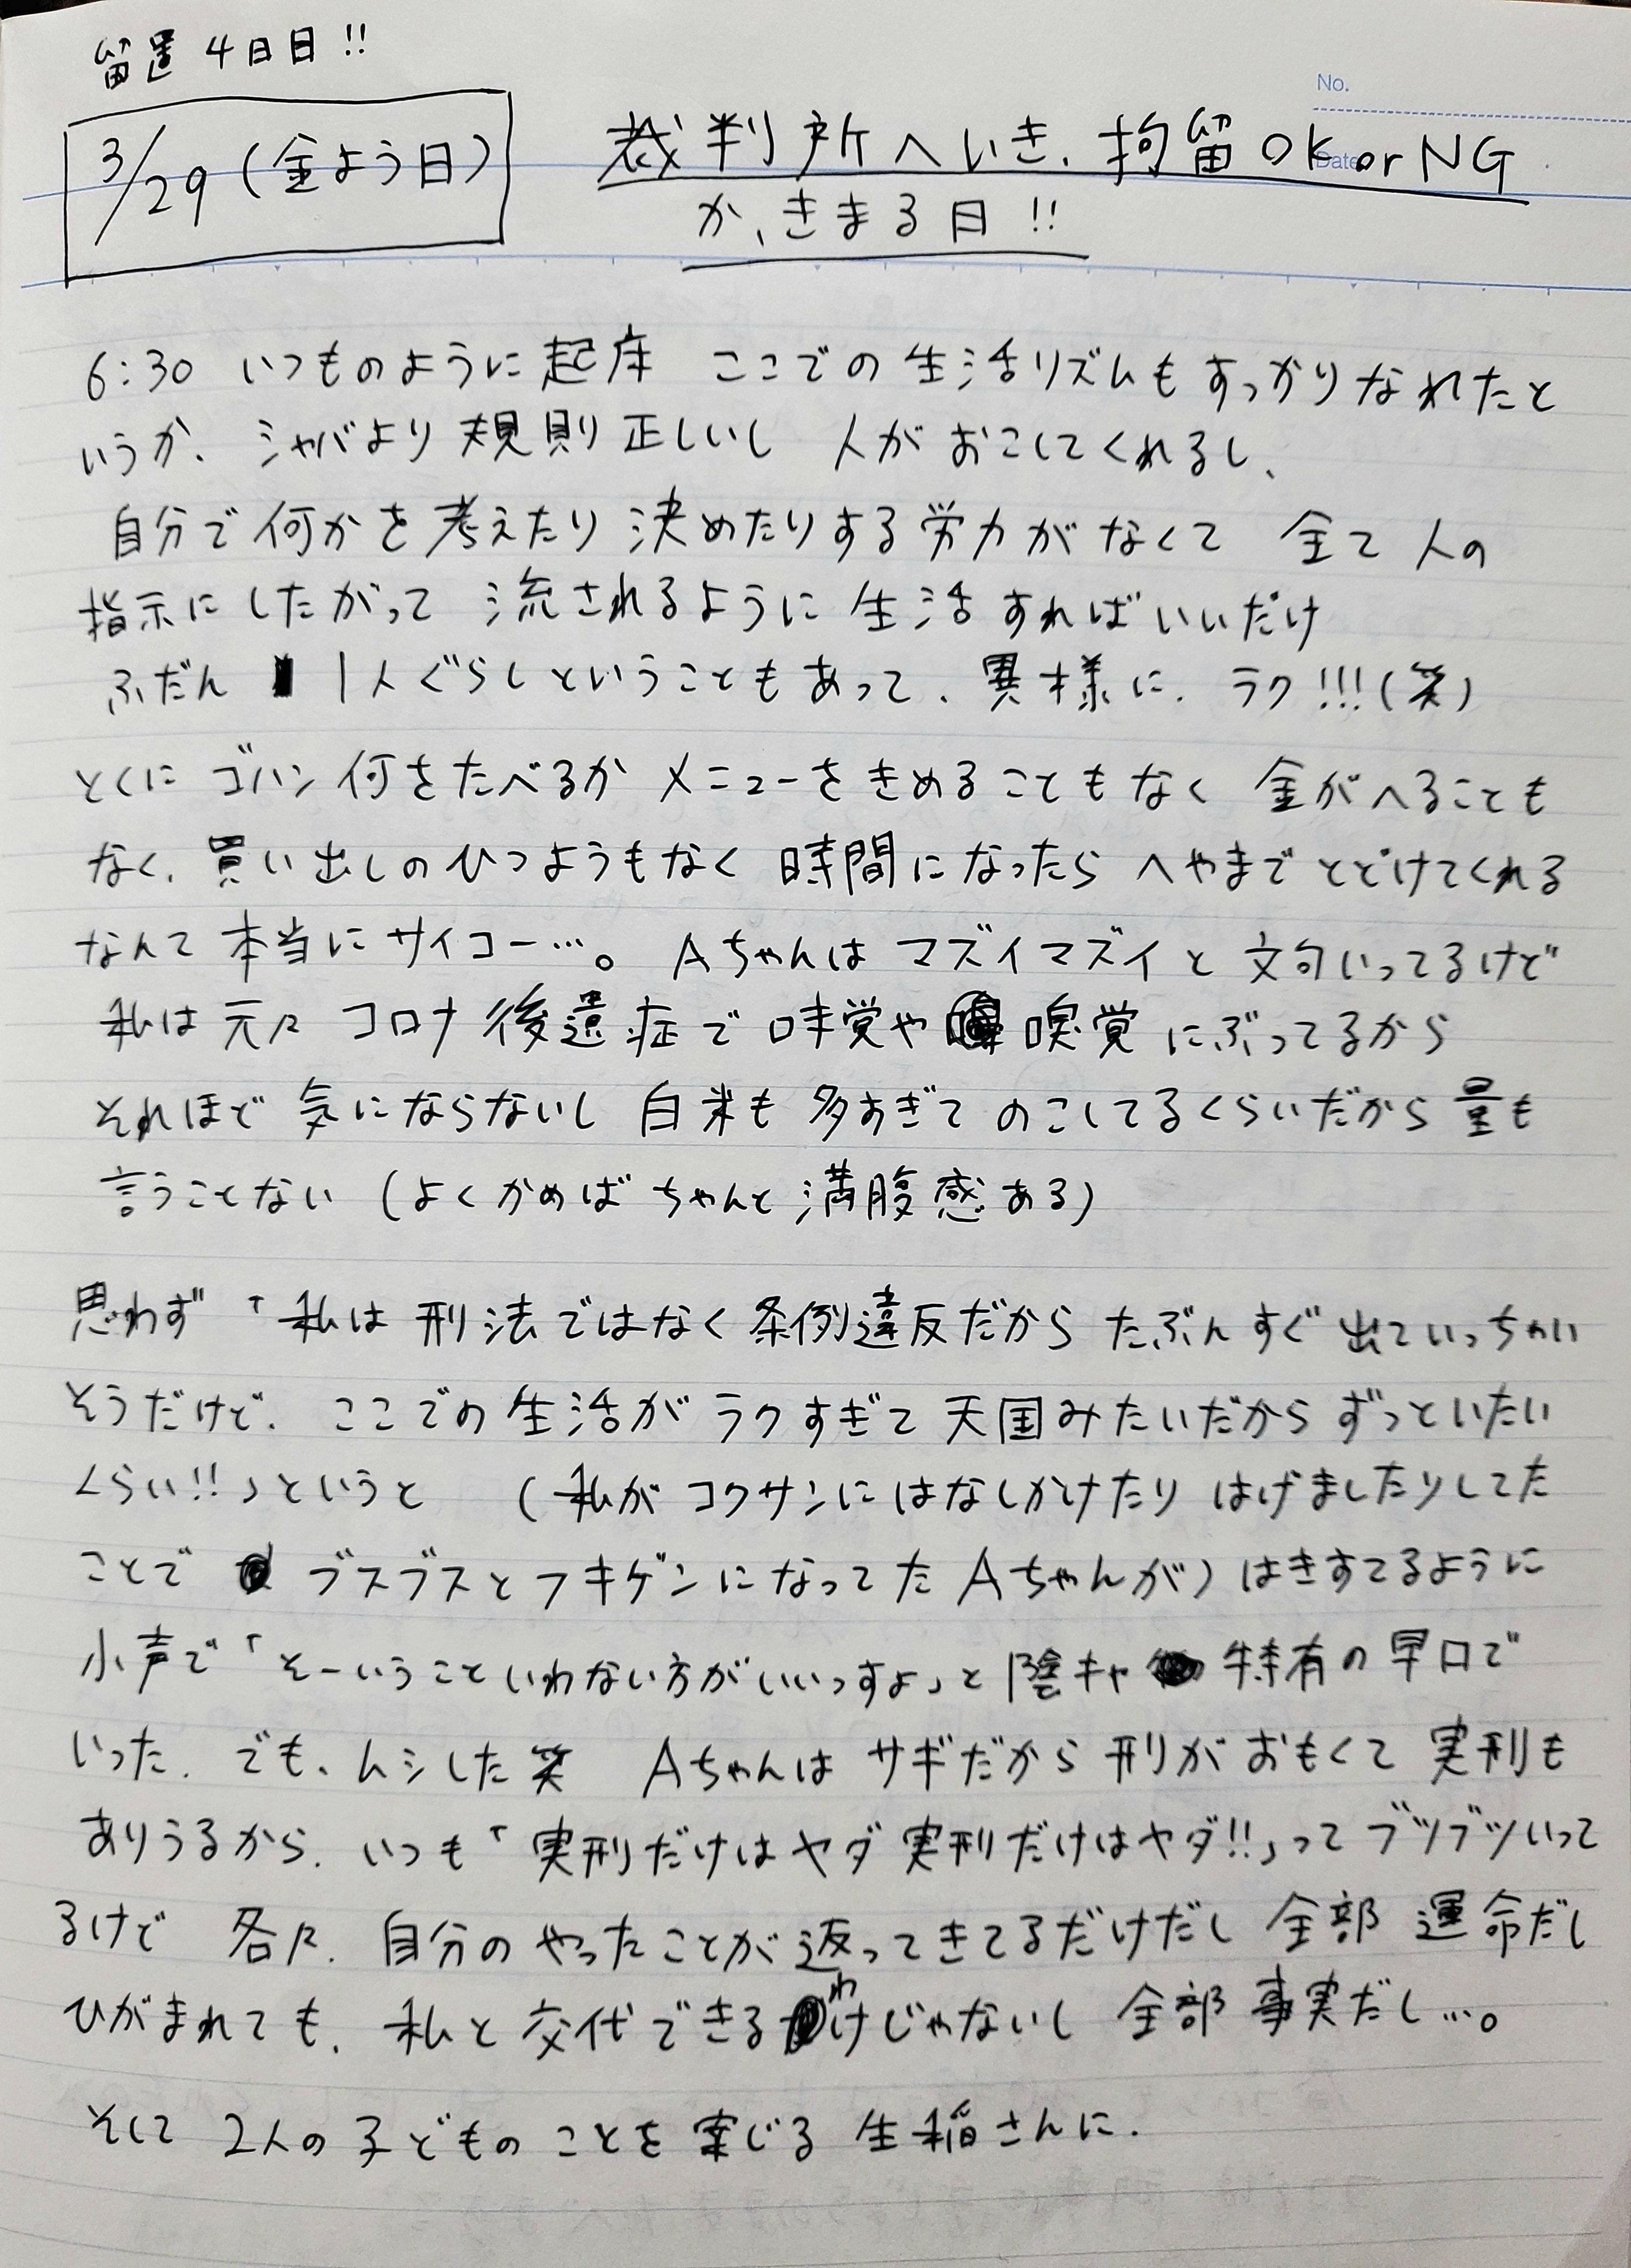 留置4日目!!
No.
Date
3/29(金よう日)
裁判所へいき、拘留OK or NG
が、きまる日!!
6:30 いつものように起床 ここでの生活リズムもすっかりなれたと
いうか、シャバより規則正しいし 人がおこしてくれるし、
自分で何かを考えたり決めたりする労力がなくて 全て人の
指示にしたがって 流されるように生活すればいいだけ
ふだん 1人ぐらしということもあって、異様に、ラク!!!(笑)
とくにゴハン何をたべるかメニューをきめることもなく 金がへることも
なく、買い出しのひつようもなく 時間になったらへやまでとどけてくれる
なんて本当にサイコー…。 Aちゃんはマズイマズイと文句いってるけど
私は元々コロナ後遺症で味覚や嗅覚にぶってるから
それほど気にならないし白米も多すぎてのこしてるくらいだから量も
言うことない(よくかめばちゃんと満腹感ある)
思わず「私は刑法ではなく条例違反だからたぶんすぐ出ていっちゃい
そうだけど、ここでの生活がラクすぎて天国みたいだからずっといたい
くらい!!」というと (私がコクサンにはなしかけたりはげましたりしてた
ことで ブスブスとフキゲンになってたAちゃんが)はきすてるように
小声で「そーいうこといわない方がいいっすよ」と陰キャ特有の早口で
いった。でも、ムシした笑 Aちゃんはサギだから刑がおもくて実刑も
ありうるから、いつも「実刑だけはヤダ実刑だけはヤダ!!」ってブツブツいって
るけど 各々、自分のやったことが返ってきてるだけだし全部運命だし
ひがまれても、私と交代できるわけじゃないし全部事実だし…。
そして2人の子どものことを案じる生稲さんに、